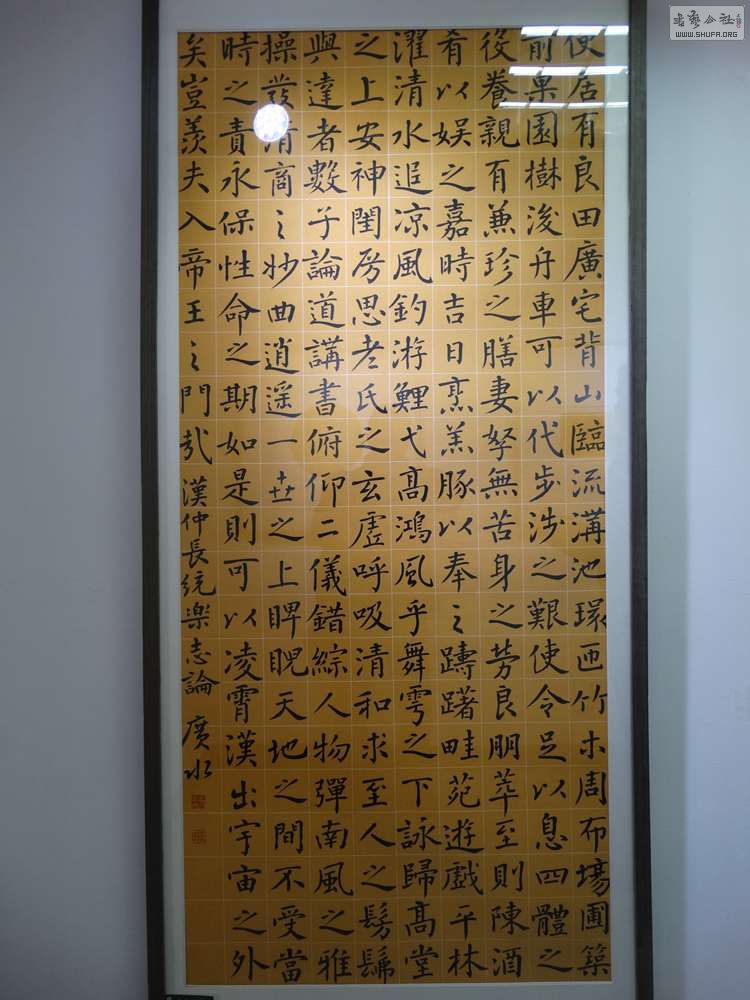 使居有良田廣宅背山臨流溝池環匝竹木周布場圃築
前果園樹後舟車可以代步涉之艱使令足以息四體之
役養親有兼珍之膳妻孥無苦身之勞良朋萃至則陳酒
肴以娱之嘉時吉日烹羔豚以奉之躊躇畦苑遊戲平林
濯清水追凉風釣游鯉弋高鴻風乎舞雩之下詠歸高堂
之上安神閨房思老氏之玄虛呼吸清和求至人之髣髴
與達者數子論道講書俯仰二儀錯綜人物彈南風之雅
操發清商之妙曲逍遥一世之上睥睨天地之間不受當
時之責永保性命之期如是則可以凌霄漢出宇宙之外
矣豈羨夫入帝王之門哉 漢仲長統樂志論 廣水
書藝公社
WWW.SHUFA.ORG